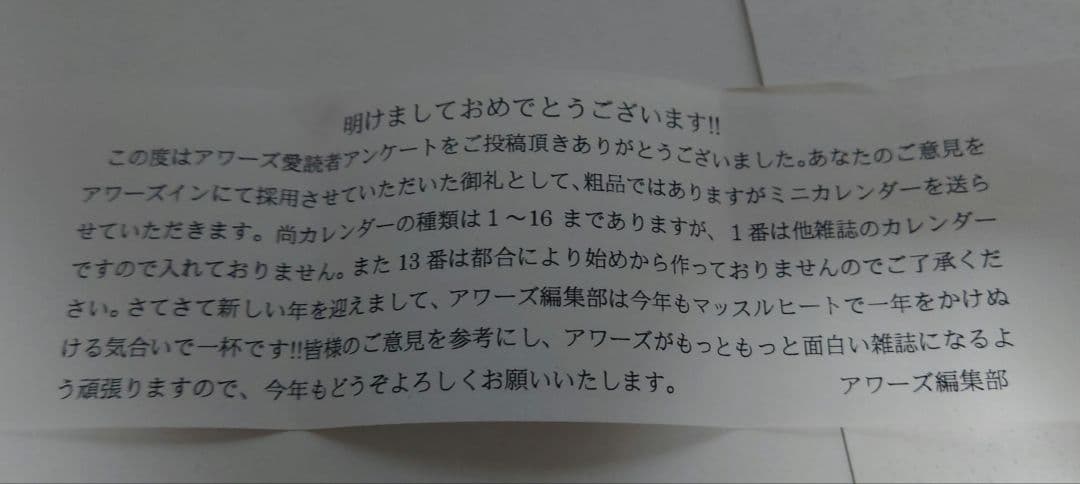 明けましておめでとうございます!!
この度はアワーズ愛読者アンケートをご投稿頂きありがとうございました。あなたのご意見を
アワーズインにて採用させていただいた御礼として、粗品ではありますがミニカレンダーを送ら
せていただきます。尚カレンダーの種類は1〜16までありますが、1番は他雑誌のカレンダー
ですので入れておりません。また13番は都合により始めから作っておりませんのでご了承くだ
さい。さてさて新しい年を迎えまして、アワーズ編集部は今年もマッスルヒートで一年をかけぬ
ける気合いで一杯です!!皆様のご意見を参考にし、アワーズがもっともっと面白い雑誌になるよ
う頑張りますので、今年もどうぞよろしくお願いいたします。 アワーズ編集部